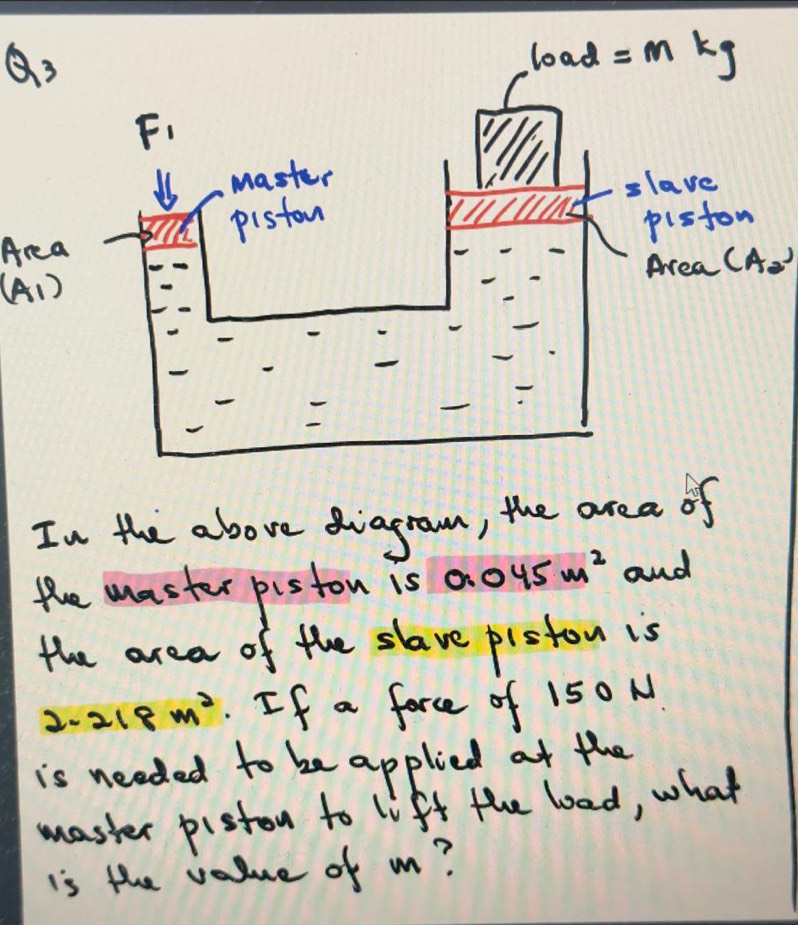 Q3
load = m kg
F1
master
piston
slave
piston
Area
(A1)
Area (A2)
In the above diagram, the area of
the master piston is 0.045 m² and
the area of the slave piston is
2.218 m². If a force of 150 N
is needed to be applied at the
master piston to lift the load, what
is the value of m?